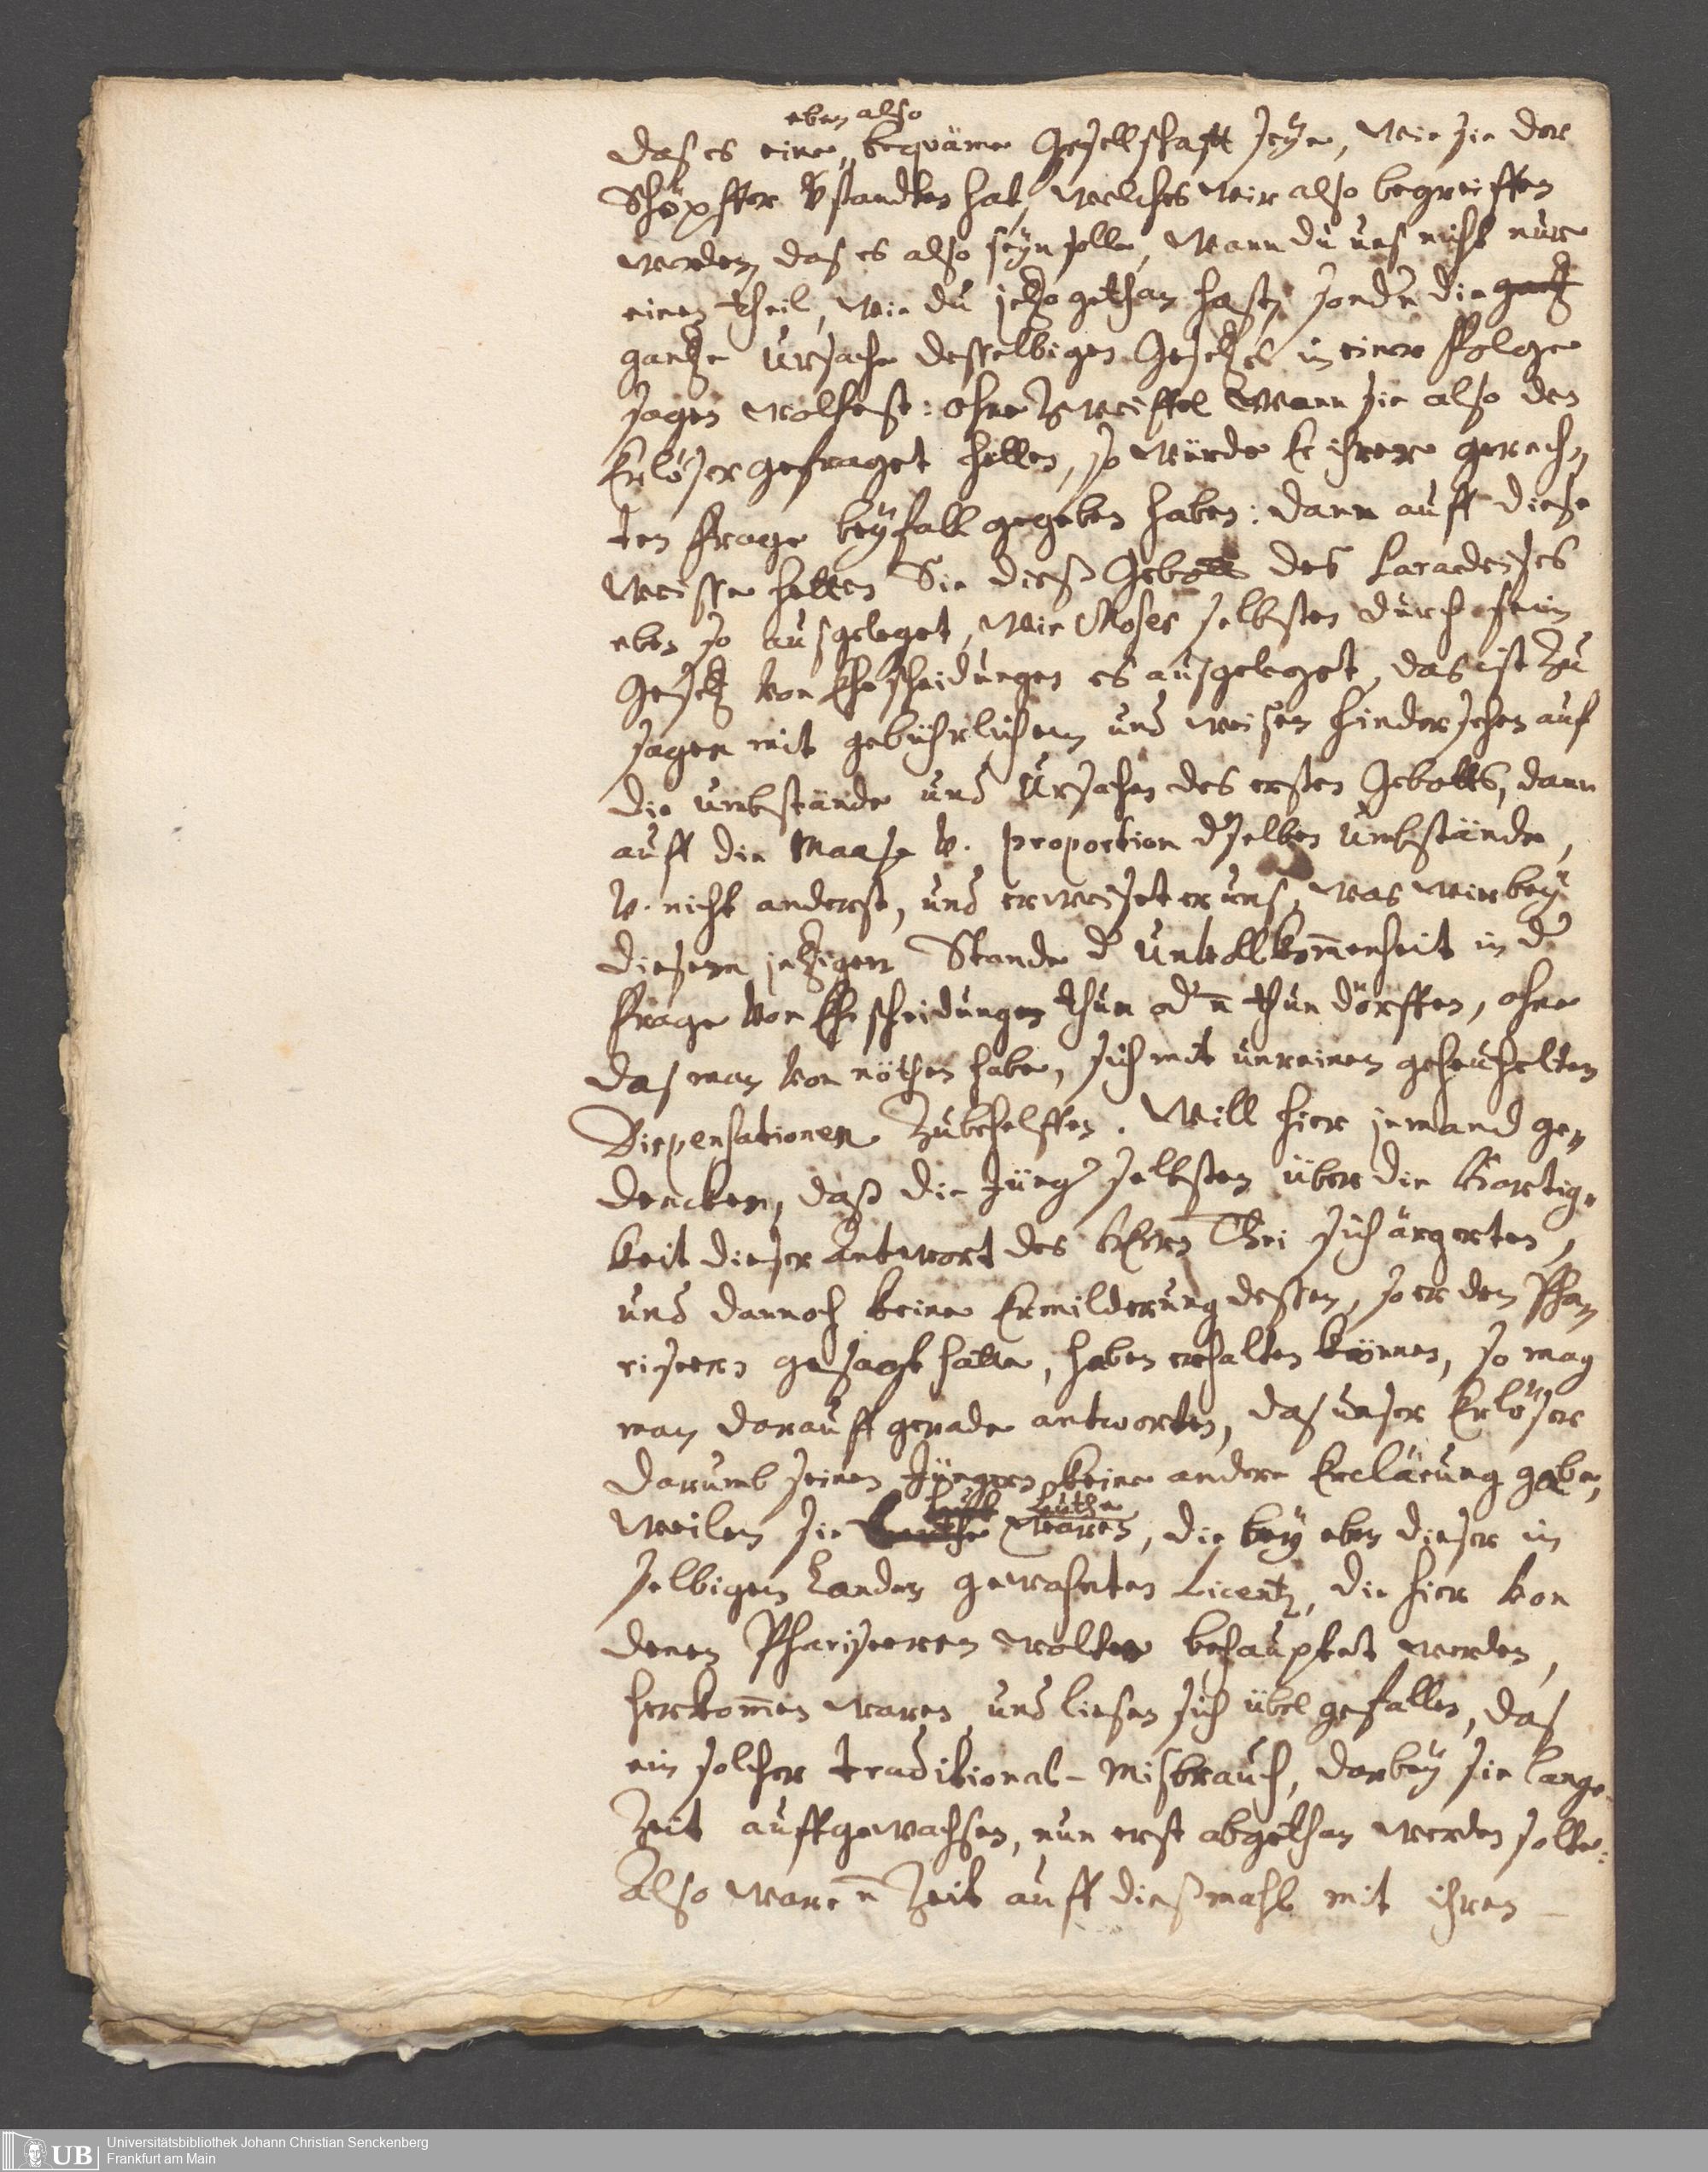 eben also
das es eine bequäme Gesellschafft seye, wie sie der
Schöpffer vstandten hat, welches wir also begreiffen
werden, das es also seyn solle, wann du uns nicht nur
einen theil, wie du jetzo gethan hast, sondn die gantz
gantze Ursache desselbigen Gesetzes in einer Folge
sagen woltest: ohne Zweiffel Wann sie also den
Erlöser gefraget hetten, so würde Er ihrer gerech„
ten Frage beyfall gegeben haben: dann auff diese
weisse hetten Sie dieß Gebott des Paradeises
eben so ausgeleget, wie Moses selbsten durch sein
Gesetz von Ehescheidungen es ausgeleget, das ist zu
sagen mit gebührlichem und weisen hindersehen auf
die umbstände und Ursachen des ersten Gebotts, dann
auff die Maase v. proportion dselben umbstände,
v. nicht anderst, und erweiset er uns, was wir bey
diesem jetzigen Stande d Unvollkom̄enheit in d
Frage von Ehescheidungen thun od n̄ thun dörffen, ohne
das man von nöthen habe, sich mit unreinen geheuchelten
Dispensationen zubehelffen. Will hier jemand ge„
dencken, daß die Jüngr selbsten über die Hartig„
keit dieser Antwort des Herrn Chri sich ärgerten,
und dannoch keine Ermilderung dessen, so er den Pha„
riseern gesagt hatte, haben erhalten können, so mag
man darauff gerade antworten, das unser Erlöser
darumb seinen Jüngern keine andere Erclärung gabe,
weilen sie Leuthe waren, die bey eben dieser in
selbigen Landen gewohnten Licentz, die hier von
denen Phariseeren wolte behauptet werden,
herkom̄en waren und liesen sich übel gefallen, das
ein solcher traditional-Misbrauch, darbey sie lange
Zeit auffgewachsen, nun erst abgethan werden solte:
Also ware n̄ Zeit auff dießmahl mit ihren
UB Universitätsbibliothek Johann Christian Senckenberg
Frankfurt am Main